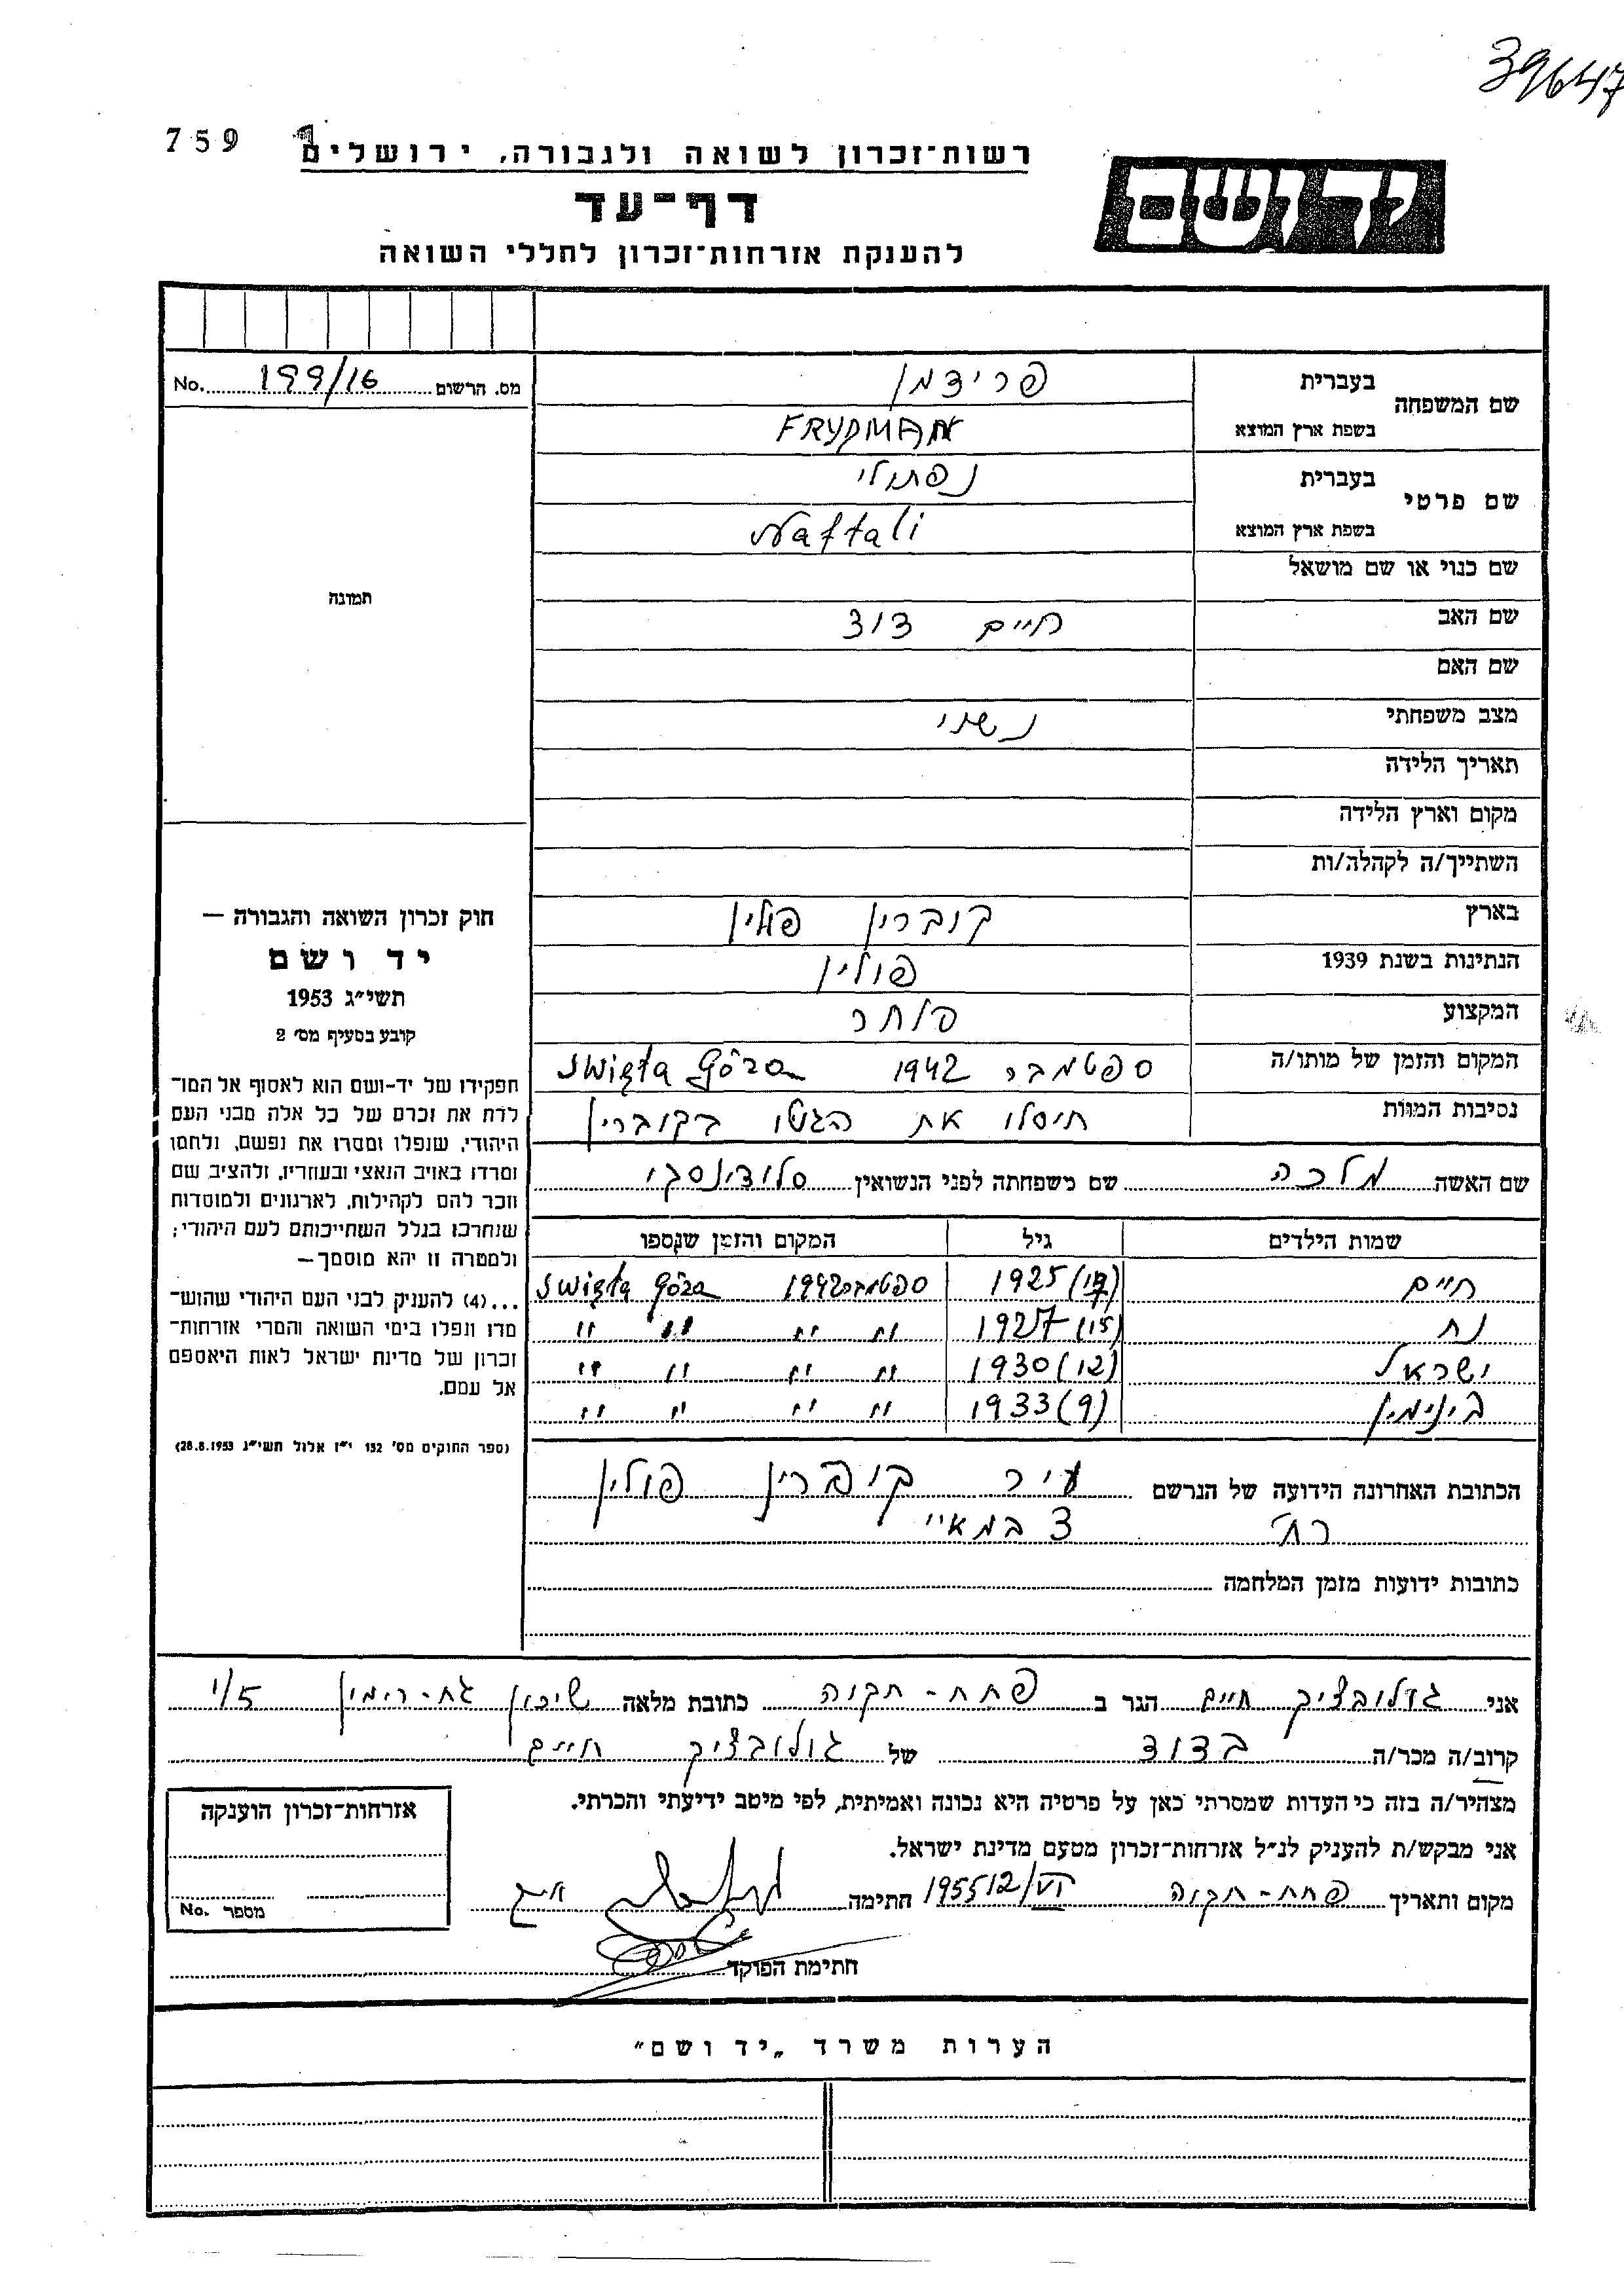 39647
759
רשות־זכרון לשואה ולגבורה, ירושלים
יד ושם
דף־עד
להענקת אזרחות־זכרון לחללי השואה
מס. הרשום 199/16 No.
שם המשפחה
בעברית פרידמן
בשפת ארץ המוצא FRYDMAN
שם פרטי
בעברית נפתולי
בשפת ארץ המוצא Naftali
שם כנוי או שם מושאל
שם האב חיים דוד
שם האם
מצב משפחתי נשוי
תאריך הלידה
מקום וארץ הלידה
השתייך/ה לקהלה/ות
בארץ קוברין פולין
הנתינות בשנת 1939 פולין
המקצוע סוחר
המקום והזמן של מותו/ה ספטמבר 1942 Swięta Góra
נסיבות המוות חיסלו את הגטו בקוברין
שם האשה מלכה שם משפחתה לפני הנשואין סלודינסקי
שמות הילדים גיל המקום והזמן שנספו
חיים 1925 (17) ספטמבר 1942 Swięta Góra
נח 1927 (15) " " " "
ישראל 1930 (12) " " " "
בינימין 1933 (9) " " " "
הכתובת האחרונה הידועה של הנרשם עיר קוברין פולין
רח' 3 במאיי
כתובות ידועות מזמן המלחמה
תמונה
חוק זכרון השואה והגבורה —
יד ושם
תשי״ג 1953
קובע בסעיף מס׳ 2
תפקידו של יד-ושם הוא לאסוף אל המו־
לדת את זכרם של כל אלה מבני העם
היהודי, שנפלו ומסרו את נפשם, נלחמו
ומרדו באויב הנאצי ובעוזריו, ולהציב שם
וזכר להם לקהילות, לארגונים ולמוסדות
שנחרבו בגלל השתייכותם לעם היהודי;
ולמטרה זו יהא מוסמך—
...(4) להעניק לבני העם היהודי שהוש־
מדו ונפלו בימי השואה והמרי אזרחות־
זכרון של מדינת ישראל לאות היאספם
אל עמם.
(ספר החוקים מס׳ 132 י״ז אלול תשי״ג 28.8.1953)
אני גולובציק חיים הגר ב פתח-תקוה כתובת מלאה שיכון גת-רימון 1/5
קרוב/ה מכר/ה בדוד של גולובציק חיים
מצהיר/ה בזה כי העדות שמסרתי כאן על פרטיה היא נכונה ואמיתית, לפי מיטב ידיעתי והכרתי.
אני מבקש/ת להעניק לנ״ל אזרחות־זכרון מטעם מדינת ישראל.
מקום ותאריך פתח-תקוה 12/VI 1955 חתימה
חתימת הפוקד
אזרחות־זכרון הוענקה
מספר No.
הערות משרד „יד ושם״